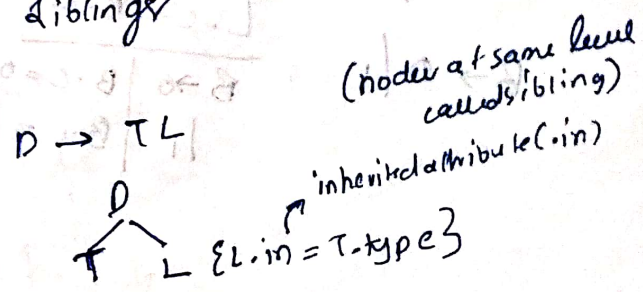 siblings
(nodes at same level
called sibling)
D → T L
inherited attribute (.in)
D
T L {L.in = T.type}